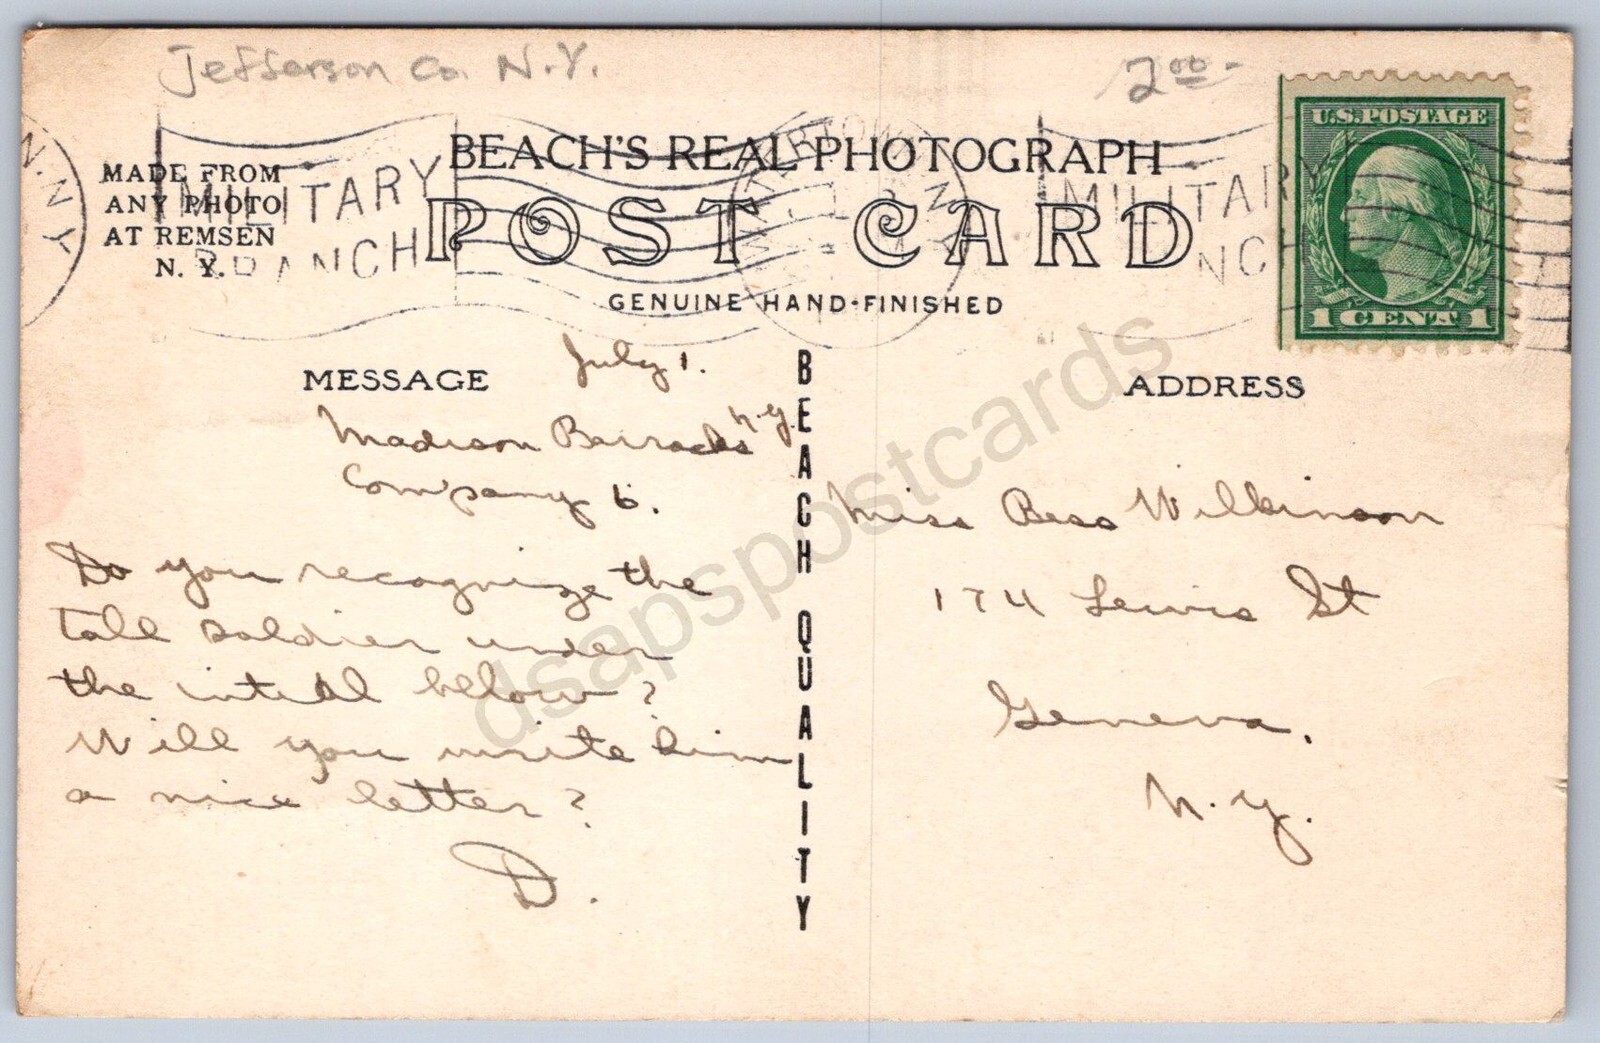 Jefferson Co. N.Y.
2.00-
U.S. POSTAGE
1 CENT 1
N.Y.
MILITARY
BRANCH
MILITARY
NCH
BEACH'S REAL PHOTOGRAPH
POST CARD
GENUINE HAND-FINISHED
MADE FROM
ANY PHOTO
AT REMSEN
N. Y.
MESSAGE
July 1.
Madison Barracks N.Y.
Company 6.
Do you recognize the
tall soldier under
the intial below?
Will you write him
a nice letter?
D.
BEACH QUALITY
ADDRESS
Miss Bess Wilkinson
174 Lewis St
Geneva.
N.Y.
dsapspostcards